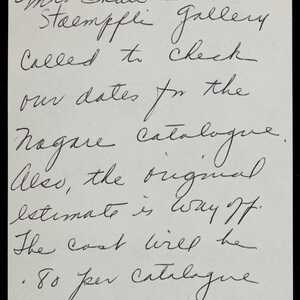 Mrs.
Staempfli Gallery
called to check
our dates for the
Nagare catalogue.
Also, the original
estimate is way off.
The cost will be
.80 per catalogue